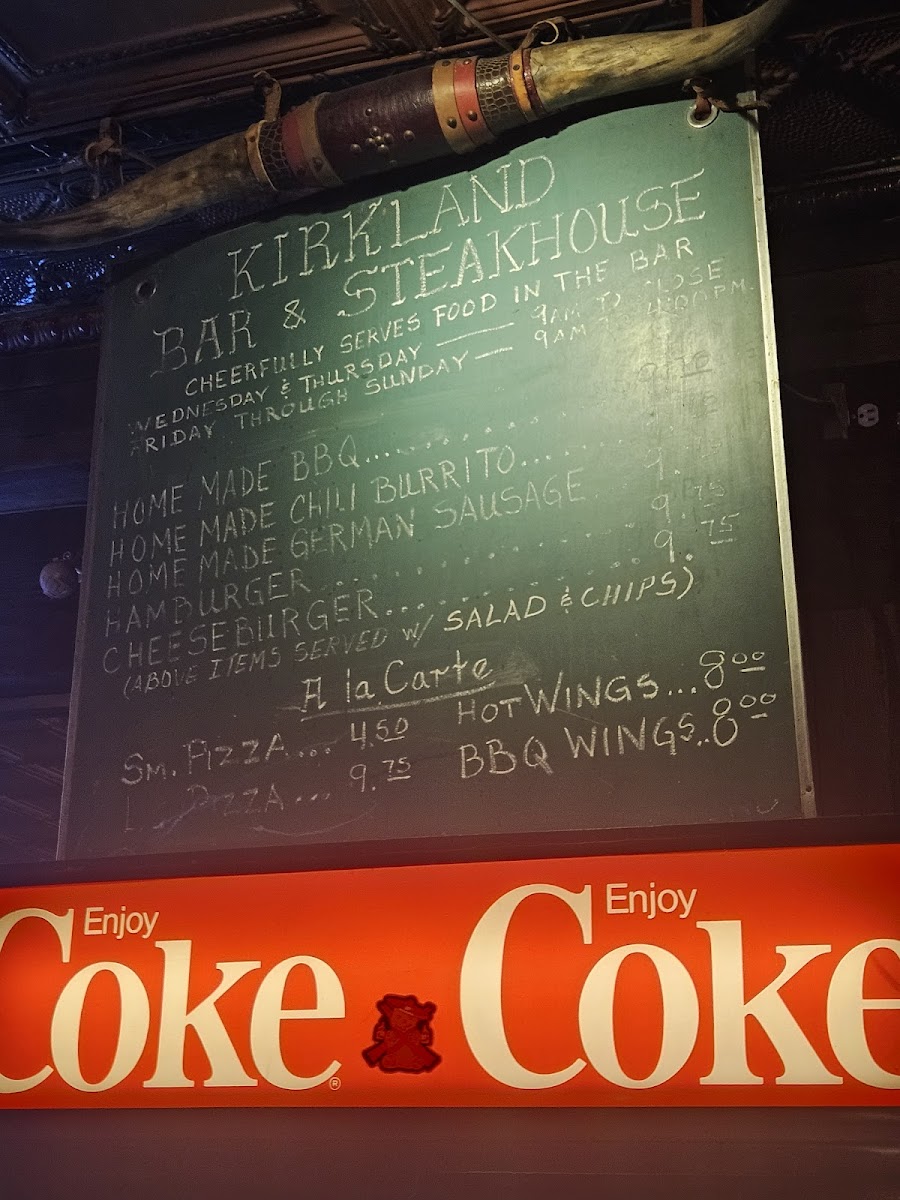 KIRKLAND
BAR & STEAKHOUSE
CHEERFULLY SERVES FOOD IN THE BAR
WEDNESDAY & THURSDAY —— 9AM TO CLOSE
FRIDAY THROUGH SUNDAY — 9AM 4:00PM.
HOME MADE BBQ........
HOME MADE CHILI BURRITO.....
HOME MADE GERMAN SAUSAGE
HAMBURGER........... 9.75
CHEESEBURGER........... 9.75
(ABOVE ITEMS SERVED W/ SALAD & CHIPS)
A la Carte
SM. PIZZA... 4.50 HOT WINGS...8.00
PIZZA.... 9.75 BBQ WINGS..8.00
Enjoy Coke ® Enjoy Coke